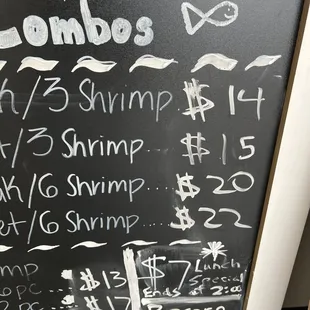 Combos
/3 Shrimp $ 14
/3 Shrimp $ 15
/6 Shrimp.... $ 20
et/6 Shrimp.... $ 22
$13
$17
$7 Lunch
Special
Ends at 2:00